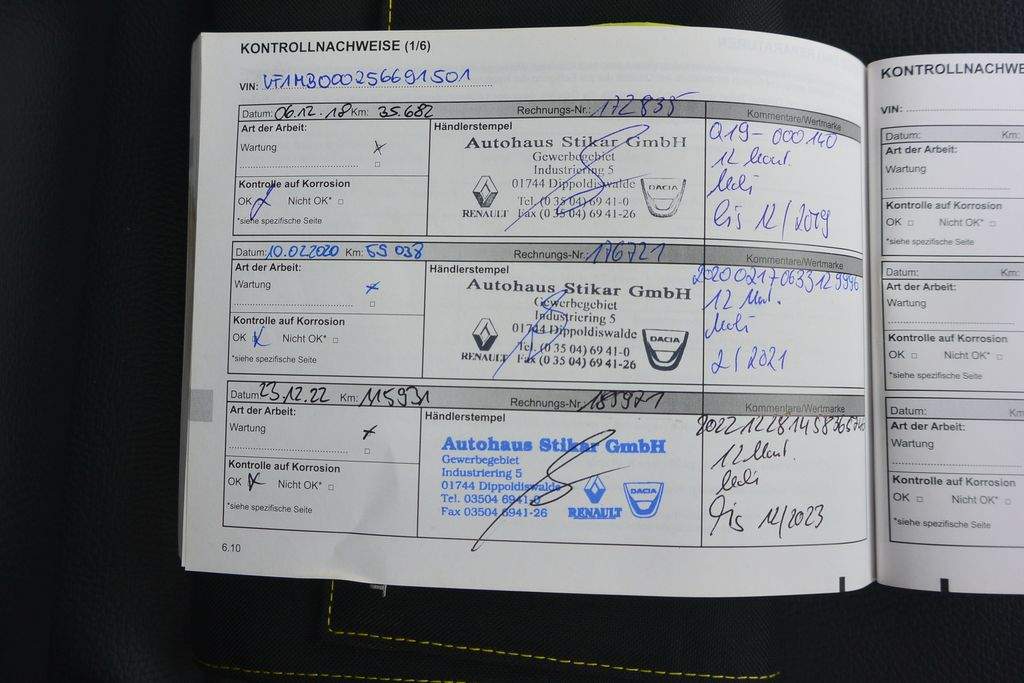 KONTROLLNACHWEISE (1/6)
VIN: VF1MB000256691501
Datum: 06.12.18 Km: 35.682 Rechnungs-Nr.: 172835 Kommentare/Wertmarke
Art der Arbeit:
Wartung
Kontrolle auf Korrosion
OK Nicht OK*
*siehe spezifische Seite
Händlerstempel
Autohaus Stikar GmbH
Gewerbegebiet
Industriering 5
01744 Dippoldiswalde
Tel. (0 35 04) 69 41-0
Fax (0 35 04) 69 41-26
RENAULT
DACIA
Q19-000140
12 Monat.
bis 12/2019
Datum: 10.02.2020 Km: 59 038 Rechnungs-Nr.: 176721 Kommentare/Wertmarke
Art der Arbeit:
Wartung
Kontrolle auf Korrosion
OK Nicht OK*
*siehe spezifische Seite
Händlerstempel
Autohaus Stikar GmbH
Gewerbegebiet
Industriering 5
01744 Dippoldiswalde
Tel. (0 35 04) 69 41-0
Fax (0 35 04) 69 41-26
RENAULT
DACIA
20200217063312 9996
12 Mat.
2/2021
Datum: 23.12.22 Km: 115931 Rechnungs-Nr.: 185971 Kommentare/Wertmarke
Art der Arbeit:
Wartung
Kontrolle auf Korrosion
OK Nicht OK*
*siehe spezifische Seite
Händlerstempel
Autohaus Stikar GmbH
Gewerbegebiet
Industriering 5
01744 Dippoldiswalde
Tel. 03504 6941-0
Fax 03504 6941-26
RENAULT
DACIA
12 Monat.
Bis 12/2023
6.10
KONTROLLNACHWE
VIN:
Datum: Km:
Art der Arbeit:
Wartung
Kontrolle auf Korrosion
OK Nicht OK*
*siehe spezifische Seite
Datum: Km:
Art der Arbeit:
Wartung
Kontrolle auf Korrosion
OK Nicht OK*
*siehe spezifische Seite
Datum: Km:
Art der Arbeit:
Wartung
Kontrolle auf Korrosion
OK Nicht OK*
*siehe spezifische Seite